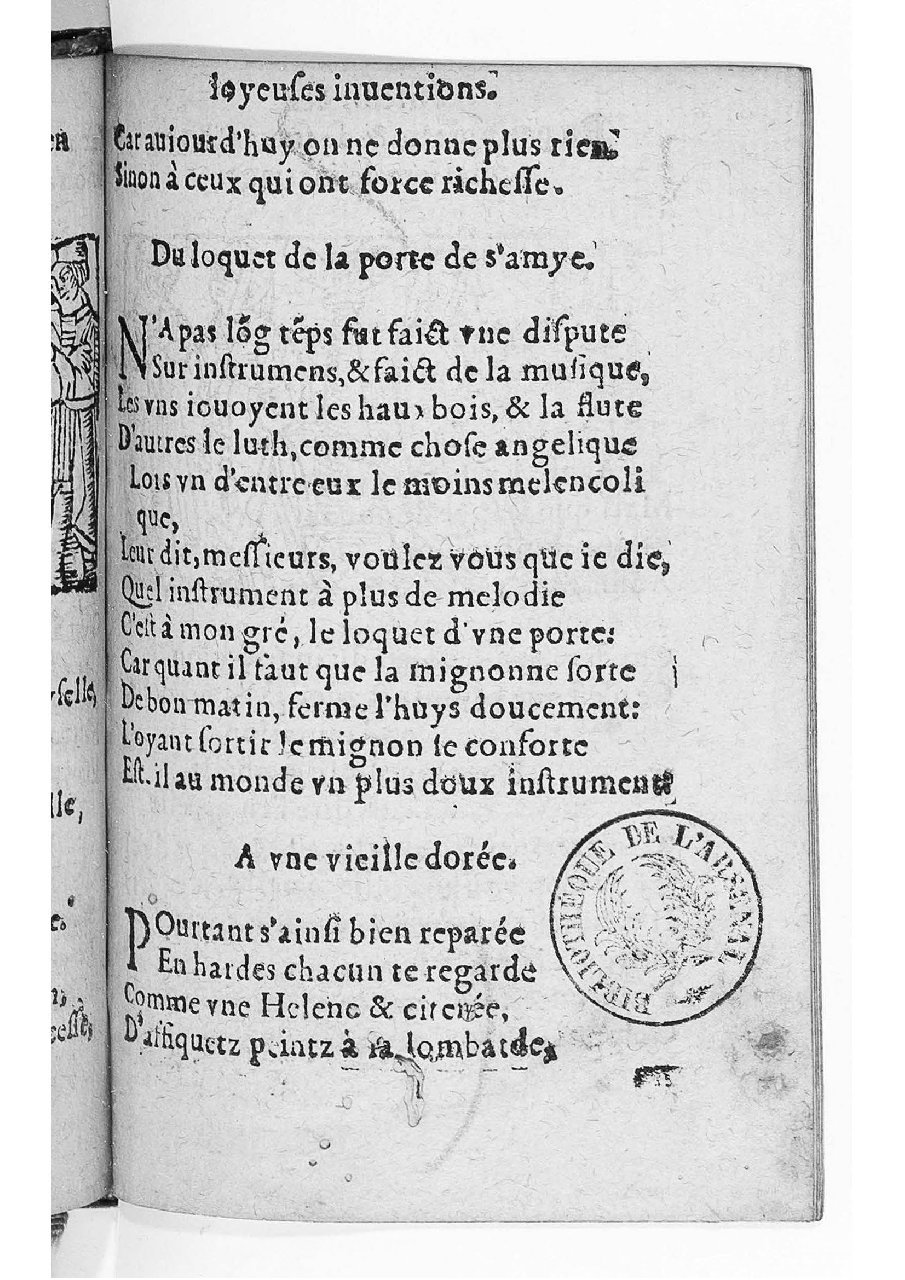 Ioyeuſes inuentions.
Car auiourd'huy on ne donne plus rien.
Sinon à ceux qui ont force richeſſe.
Du loquet de la porte de s'amye.
N'A pas lõg tẽps fut faict vne diſpute
Sur inſtrumens, & faict de la muſique,
Les vns iouoyent les haux bois, & la flute
D'autres le luth, comme choſe angelique
Lors vn d'entre eux le moins melencoli
que,
Leur dit, meſſieurs, voulez vous que ie die,
Quel inſtrument à plus de melodie
C'eſt à mon gré, le loquet d'vne porte:
Car quant il faut que la mignonne ſorte
De bon matin, ferme l'huys doucement:
L'oyant ſortir le mignon ſe conforte
Eſt-il au monde vn plus doux inſtrument
A vne vieille dorée.
POurtant s'ainſi bien reparée
En hardes chacun te regarde
Comme vne Helene & citerée,
D'affiquetz peintz à la lombarde,
BIBLIOTHEQUE DE L'ARSENAL
en
ſelle,
lle,